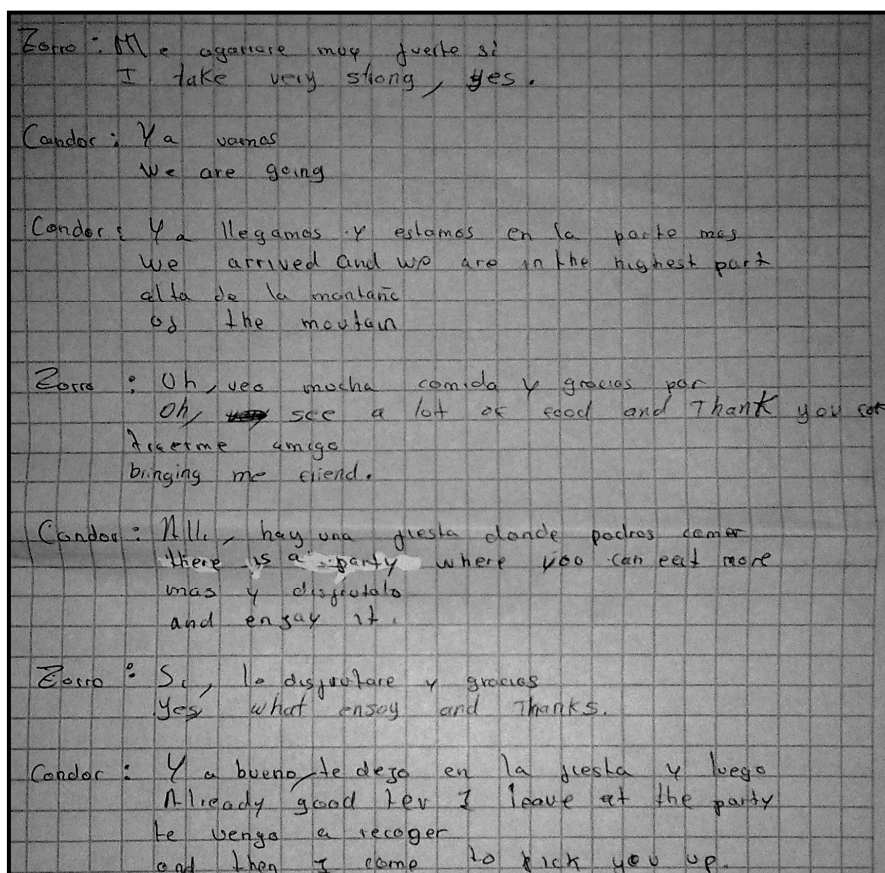 Zorro : Me agarrare muy fuerte si
I take very strong, yes.
Condor : Ya vamos
We are going
Condor : Ya llegamos y estamos en la parte mas
we arrived and we are in the highest part
alta de la montañc
of the moutain
Zorro : Oh, veo mucha comida y gracias por
Oh, see a lot of food and Thank you for
traerme amigo
bringing me friend.
Condor : Alli, hay una fiesta donde podras comer
there is a party where you can eat more
mas y disfrutalo
and ensay it.
Zorro : Si, lo disfrutare y gracias
Yes, what ensoy and Thanks.
Condor : Ya bueno, te dejo en la fiesta y luego
Already good I leave at the party
te vengo a recoger
and then I come to pick you up.